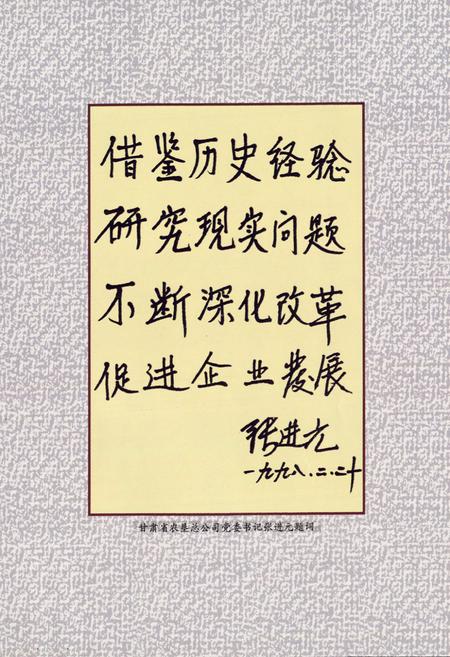 借鉴历史经验
研究现实问题
不断深化改革
促进企业发展
张进元
一九九八.二.二十
甘肃省农垦总公司党委书记张进元题词